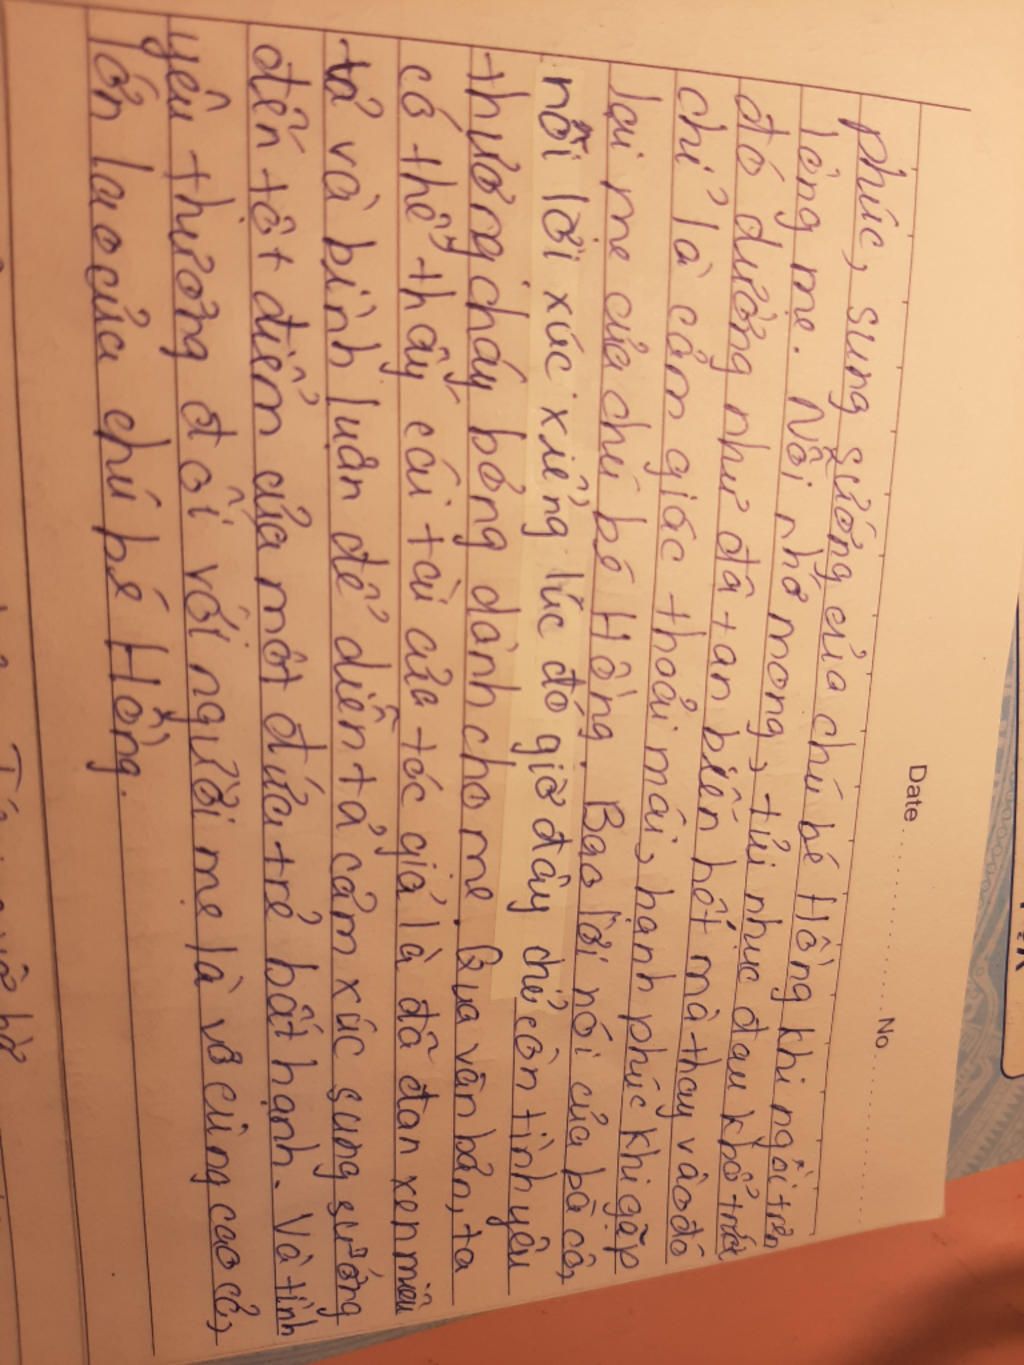 Date No
phúc, sung sướng của chú bé Hồng khi ngồi trên
lòng mẹ. Nỗi nhớ mong, tủi nhục đau khổ trước
đó dường như đã tan biến hết mà thay vào đó
chỉ là cảm giác thoải mái, hạnh phúc khi gặp
lại mẹ của chú bé Hồng. Bao lời nói của bà cô,
nỗi lời xúc xiểng lúc đó giờ đây chỉ còn tình yêu
thương cháy bỏng dành cho mẹ. Qua văn bản, ta
có thể thấy cái tài của tác giả là đã đan xen miêu
tả và bình luận để diễn tả cảm xúc sung sướng
đến tột điểm của một đứa trẻ bất hạnh. Và tình
yêu thương đối với người mẹ là vô cùng cao cả,
lớn lao của chú bé Hồng.